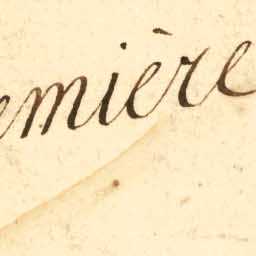 emière